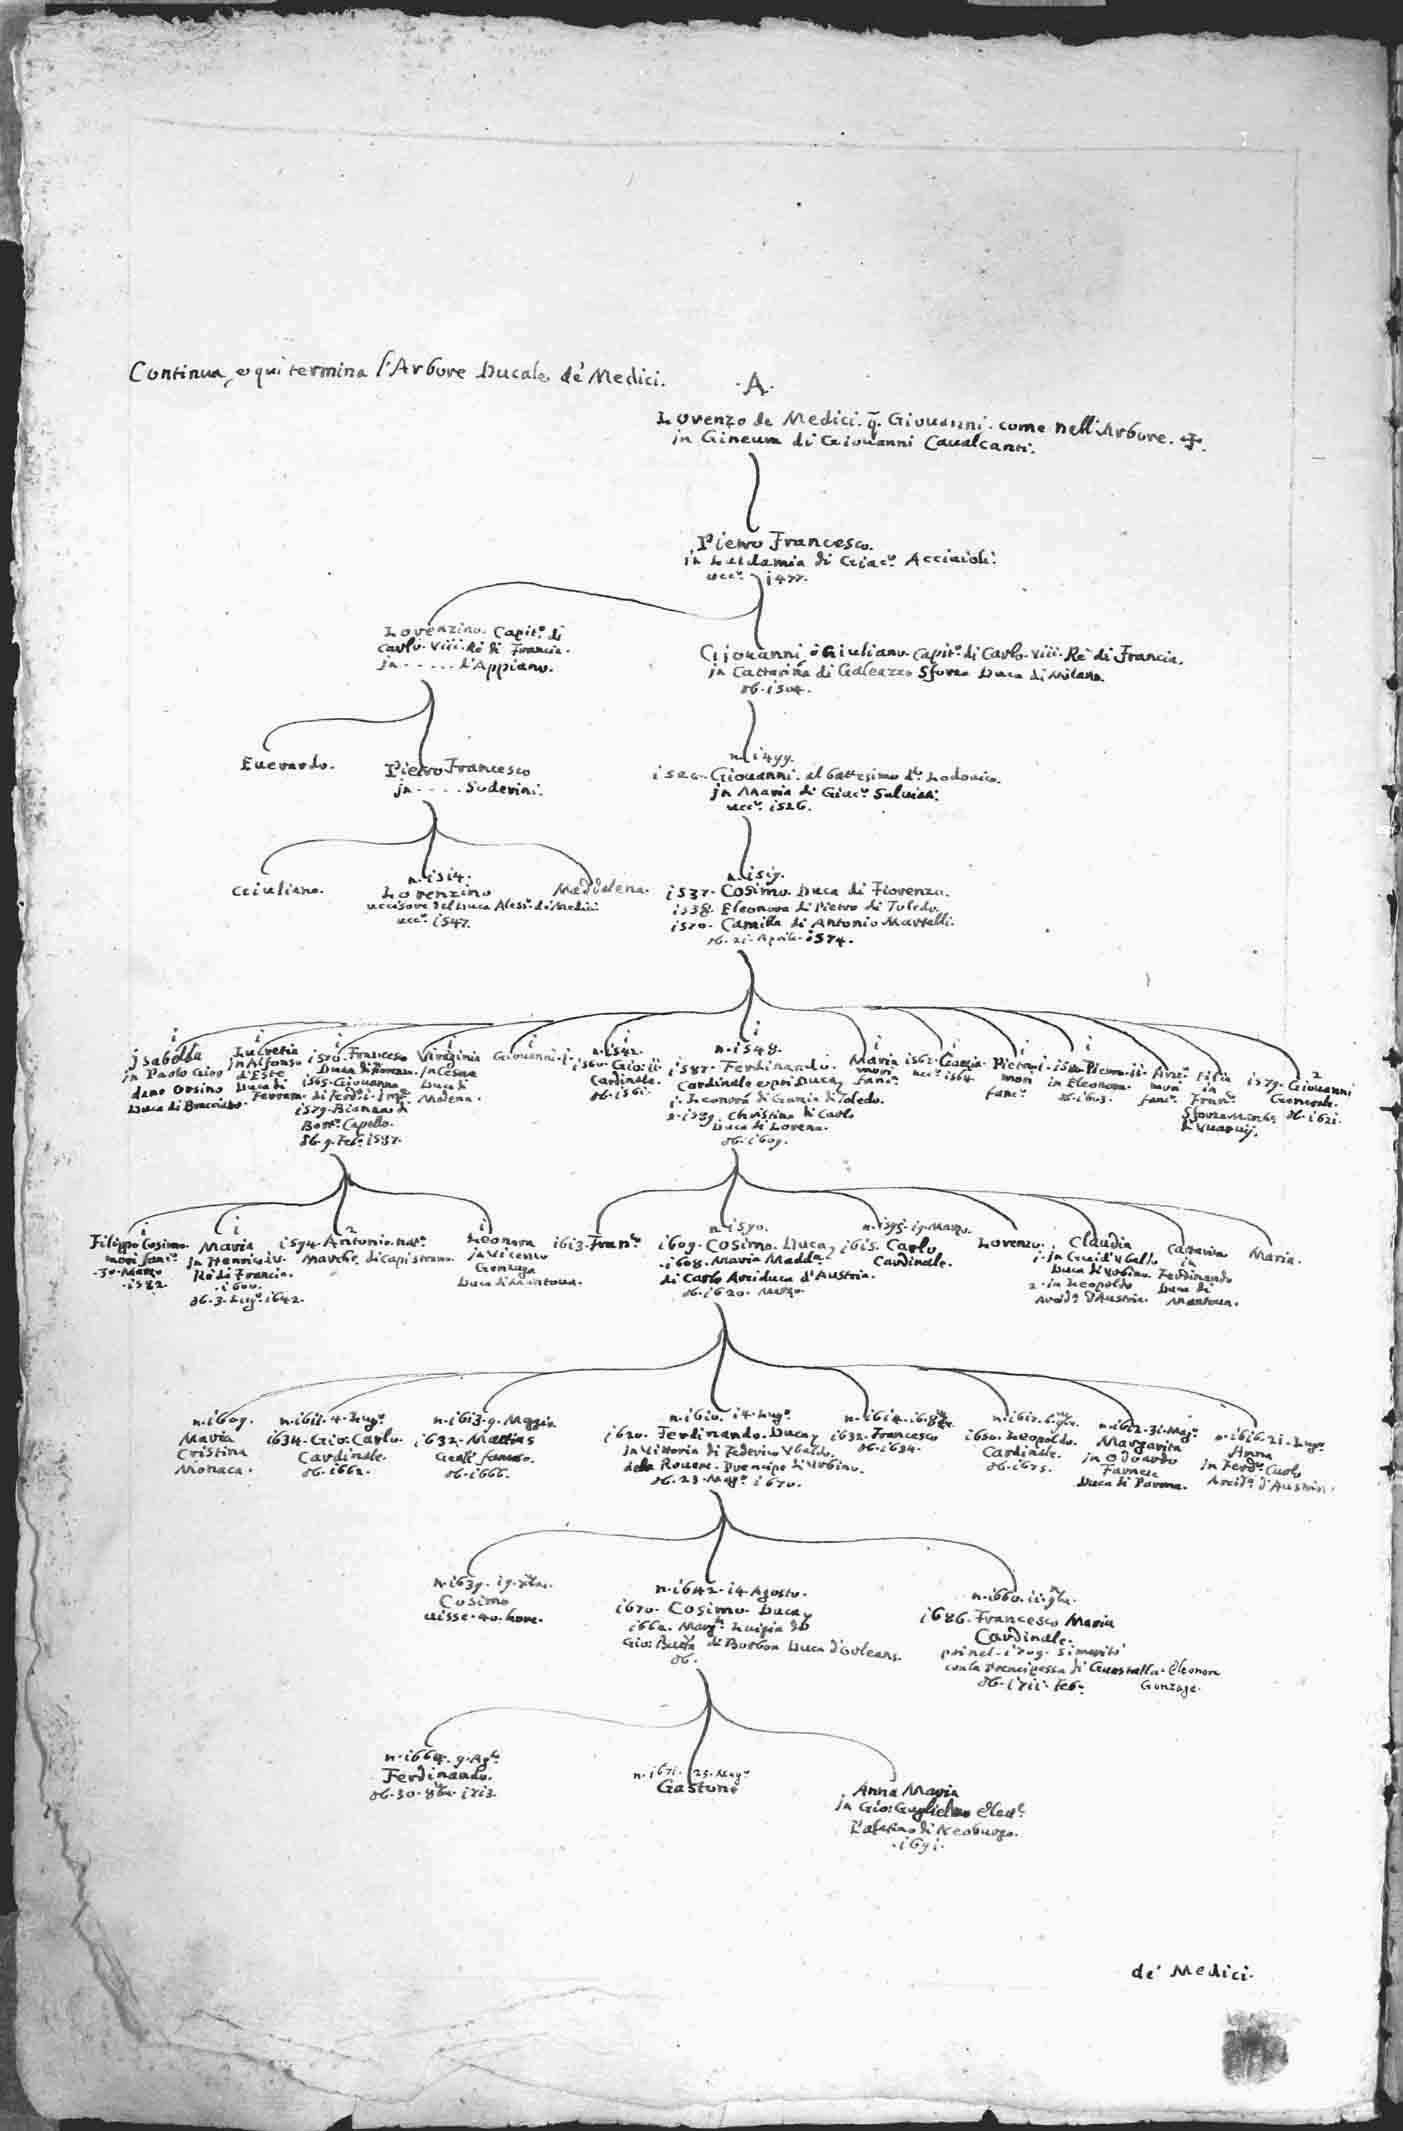 Continua, e qui termina l'Arbore Ducale de' Medici.
·A·
Lorenzo de Medici. q. Giouanni. come nell'Arbore.
jn Gineura di Giouanni Caualcanti.
Pietro Francesco.
jn Laudamia di Giac.º Acciaioli.
ucc.º i477.
Lorenzino. Capit.º di
Carlo. Viii. Rè di Francia.
jn . . . . . d'Appiano.
Giouanni, ò Giuliano. Capit.º di Carlo. Viii. Rè di Francia.
jn Cattarina di Galeazzo Sforza Duca di Milano.
ob. i504.
Euerardo.
Pietro Francesco
jn . . . . Soderini.
n. i499.
Giouanni. al battesimo d.º Lodouico.
jn Maria di Giac.º Saluiati.
ucc.º i526.
Giuliano.
n. i514.
Lorenzino
uccisore del Duca Aless.º di Medici
ucc.º i547.
Maddalena.
n. i519.
i537. Cosimo. Duca di Fiorenza.
i538. Eleonora di Pietro di Toledo.
i570. Camilla di Antonio Martelli.
ob. 21. Aprile. i574.
i
jsabella
jn Paolo Gior
dano Orsino
Duca di Bracciano.
i
Lucretia
jn Alfonso
d'Este
Duca di
Ferrara.
i
i570. Francesco
Duca di Fiorenza
i565. Giouanna
di Ferd.º i. Imp.re
i579. Bianca di
Bort.º Capello.
ob. 9. Feb.º i587.
i
Virginia
jn Cesare
Duca di
Modena.
i
Giouanni. i.
i
n. i542.
i560. Gio: ii
Cardinale.
ob. i561.
i
n. i548.
i587. Ferdinando.
Cardinale e poi Duca
i. Leonora di Garzia di Toledo.
2. i589. Christina di Carlo
Duca di Lorena.
ob. i609.
i
Maria
morì
fanc.ª
i
i562. Garzia
ucc.º i564.
i
Pietro. i.
morì
fanc.º
i
Pietro. ii.
in Eleonora.
ob. i603.
morì
fanc.º
in
Fran.º
Sforza March.e
2
i579. Giouanni
Generale.
ob. i621.
i
Filippo Cosimo.
morì fanc.º
.30. Marzo
.i582.
i
Maria
jn Henrico. iv.
Rè di Francia.
. i600.
ob. 3. Lug.º i642.
2
i594. Antonio. nat.e
March.e di Capistrano.
i
Leonora
jn Vicenzo
Gonzaga
Duca di Mantoua.
i613. Fran.º
n. i590.
i609. Cosimo. Duca
. i608. Maria Madd.a
di Carlo Arciduca d'Austria.
ob. i620. Marzo.
n. i595. 19. Marzo.
i615. Carlo
Cardinale.
Lorenzo.
Claudia
i. jn Guid'Vbaldo
Duca di Vrbino.
2. in Leopoldo
Arcid.a d'Austria.
Cattarina
in
Ferdinando
Duca di
Mantoua.
Maria.
n. i609.
Maria
Cristina
Monaca.
n. i611. 4. Lug.º
i634. Gio: Carlo.
Cardinale.
ob. i662.
n. i613. 9. Maggio
i632. Mattias
Gen.le famoso.
ob. i666.
n. i610. i4. Lug.º
i620. Ferdinando. Duca
jn Vittoria di Federico Vbaldo
della Rouere. Prencipe di Vrbino.
ob. 23. Mag.º i670.
n. i614. i6. 8bre.
i632. Francesco
ob. i634.
n. i617. 6. 9bre.
i650. Leopoldo.
Cardinale.
ob. i675.
n. i612. 31. Mag.º
Margarita
jn Odoardo
Farnese
Duca di Parma.
n. i616. 21. Lug.º
Anna
jn Ferd.º Carlo
Arcid.a d'Austria.
n. i639. 19. Xbre.
Cosimo
uisse. 40. hore.
n. i642. i4. Agosto.
i670. Cosimo. Duca
i661. Marg.ta Luigia di
Gio: Batt.a di Borbon Duca d'Orleans.
ob.
n. i660. ii. 9bre.
i686. Francesco Maria
Cardinale.
poi nel. i709. si maritò
con la Prencipessa di Guastalla. Eleonora
Gonzaga.
ob. i7ii. Feb.º
n. i664. 9. Ag.to
Ferdinando.
ob. 30. 8bre. i713.
n. i671. 25. Mag.º
Gastone
Anna Maria
jn Gio: Guglielmo Elett.e
Palatino di Neoburgo.
. i691.
de' Medici.